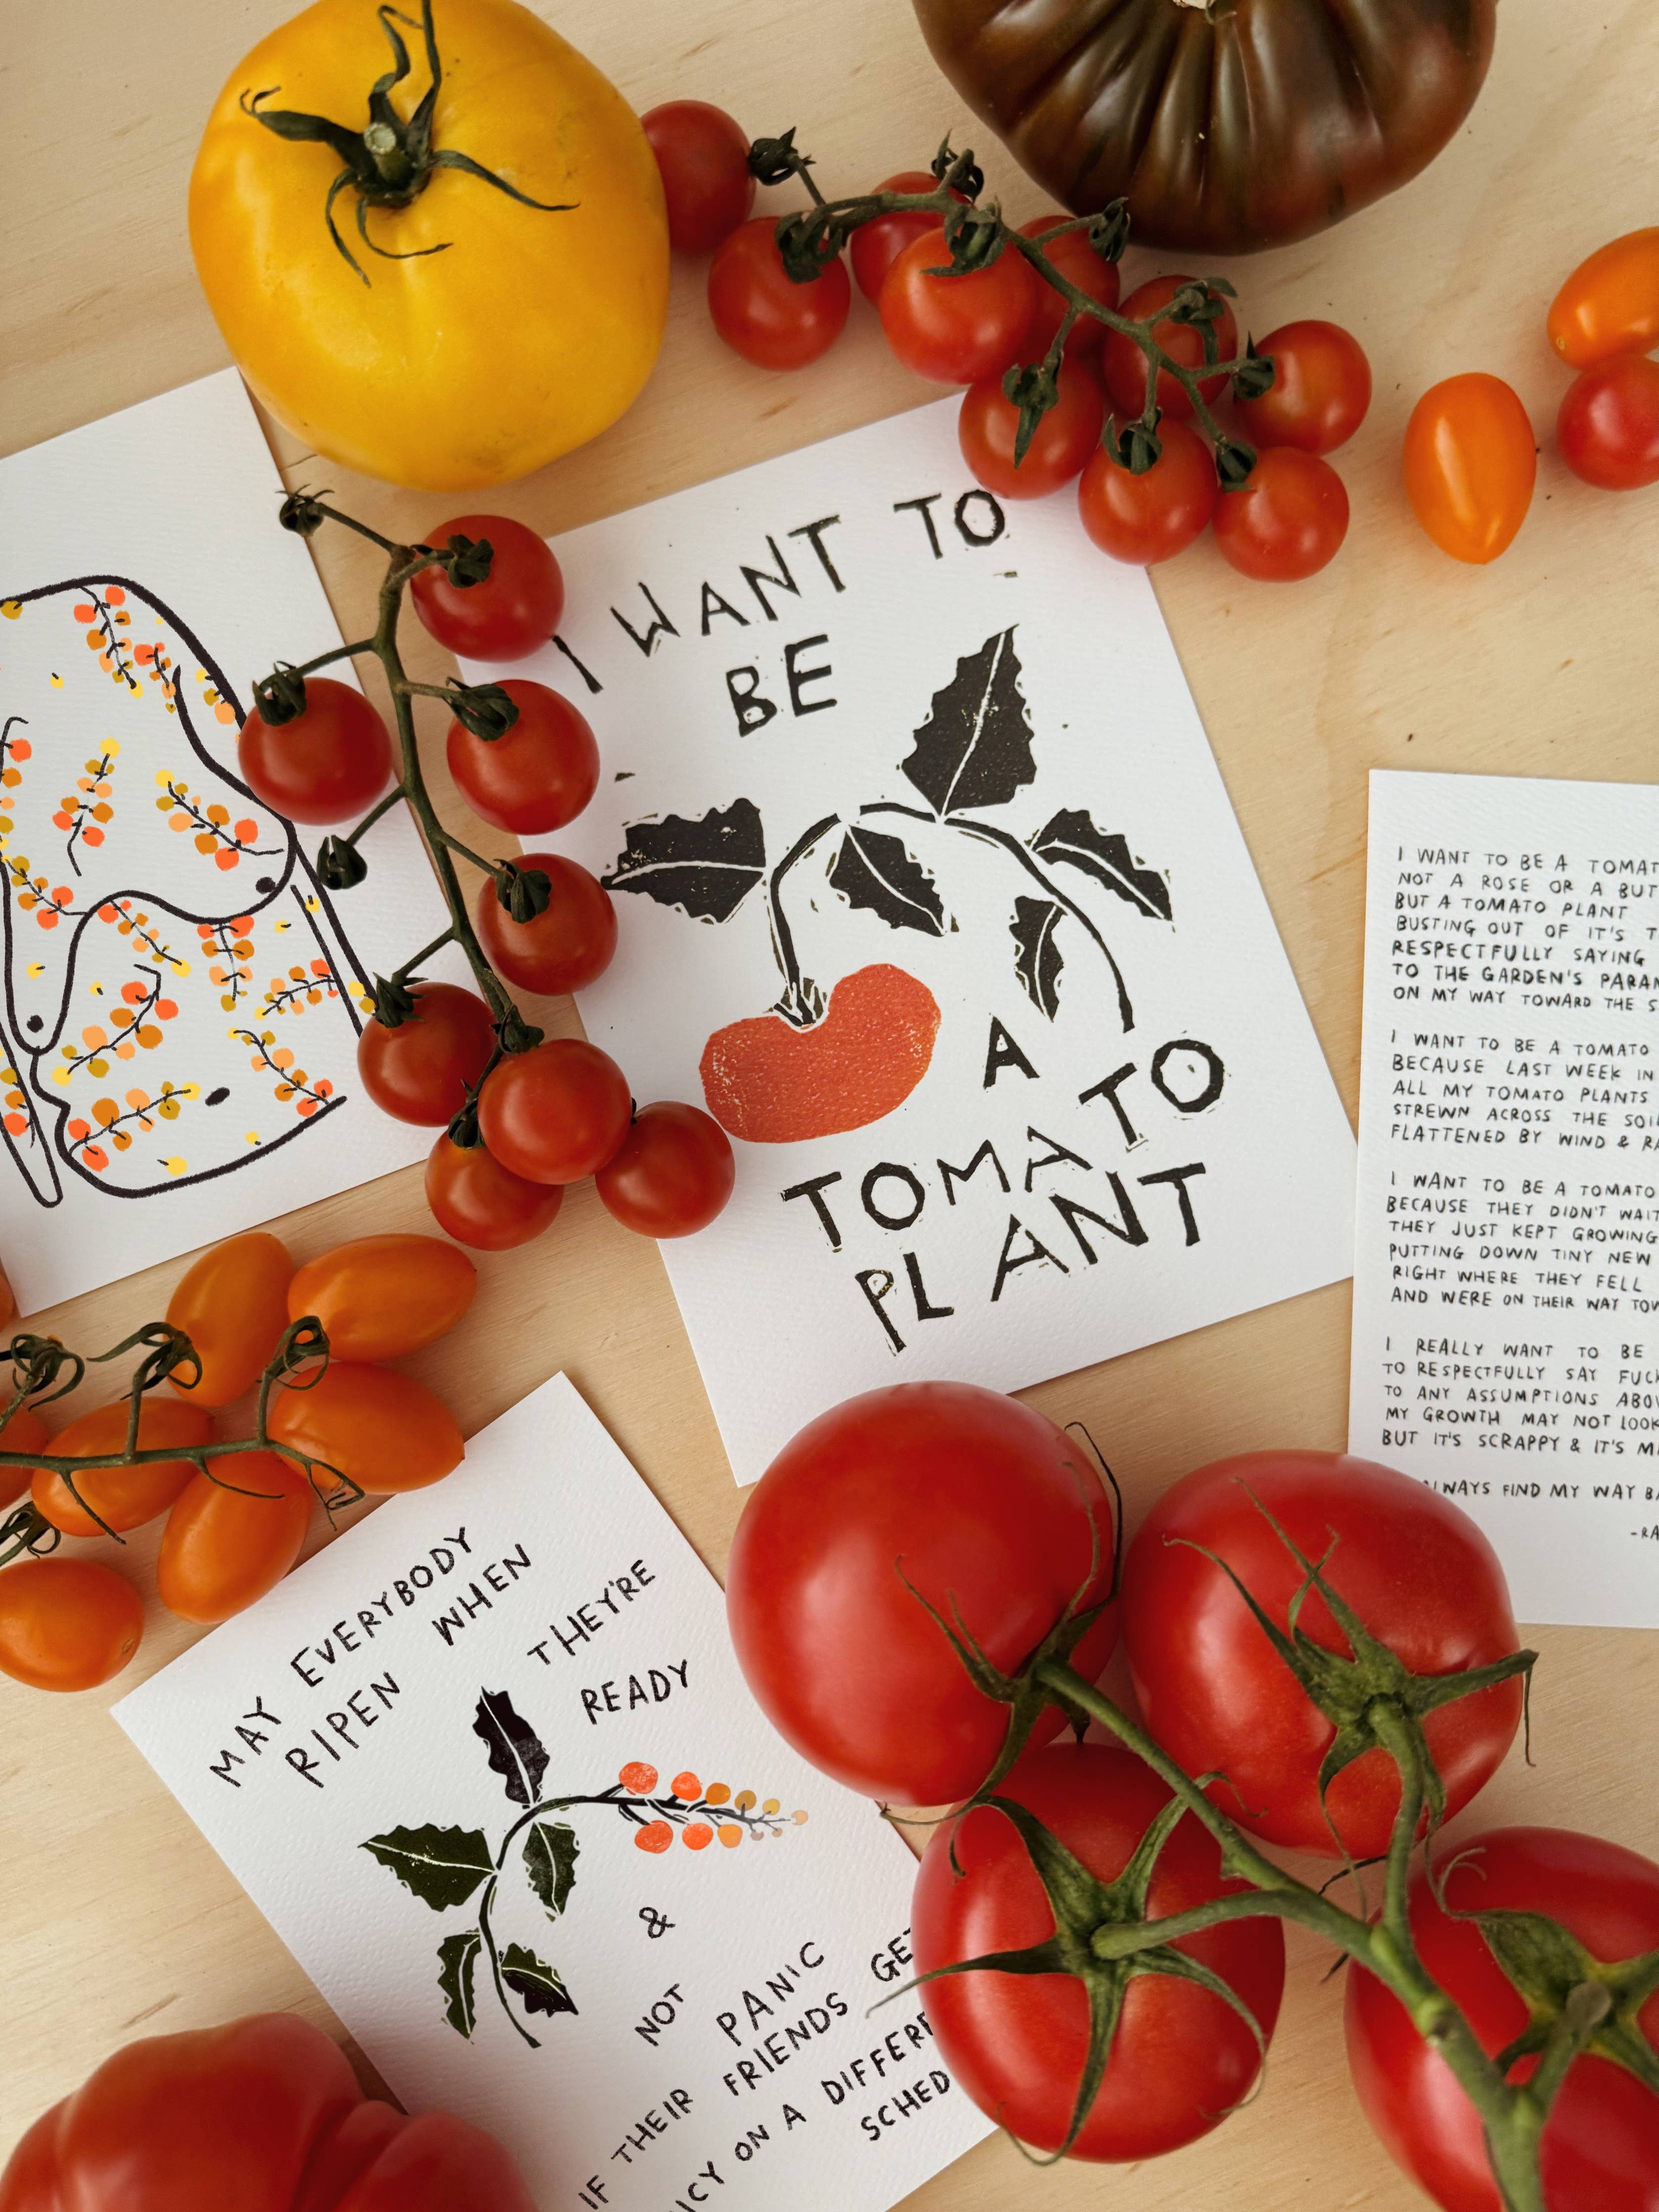 I WANT TO
BE
A
TOMATO
PLANT
I WANT TO BE A
NOT A ROSE OR A
BUT A TOMATO PLANT
BUSTING OUT OF IT'S
RESPECTFULLY SAYING
TO THE GARDEN'S
ON MY WAY TOWARD THE
I WANT TO BE A TOMATO
BECAUSE LAST WEEK IN
ALL MY TOMATO PLANTS
STREWN ACROSS THE
FLATTENED BY WIND &
I WANT TO BE A TOMATO
BECAUSE THEY DIDN'T
THEY JUST KEPT GROWING
PUTTING DOWN TINY NEW
RIGHT WHERE THEY FELL
AND WERE ON THEIR WAY
I REALLY WANT TO BE
TO RESPECTFULLY SAY
TO ANY ASSUMPTIONS
MY GROWTH MAY NOT LOOK
BUT IT'S SCRAPPY & IT'S
FIND MY WAY
MAY EVERYBODY
RIPEN WHEN
THEY'RE
READY
&
NOT PANIC
IF THEIR FRIENDS GET
ON A